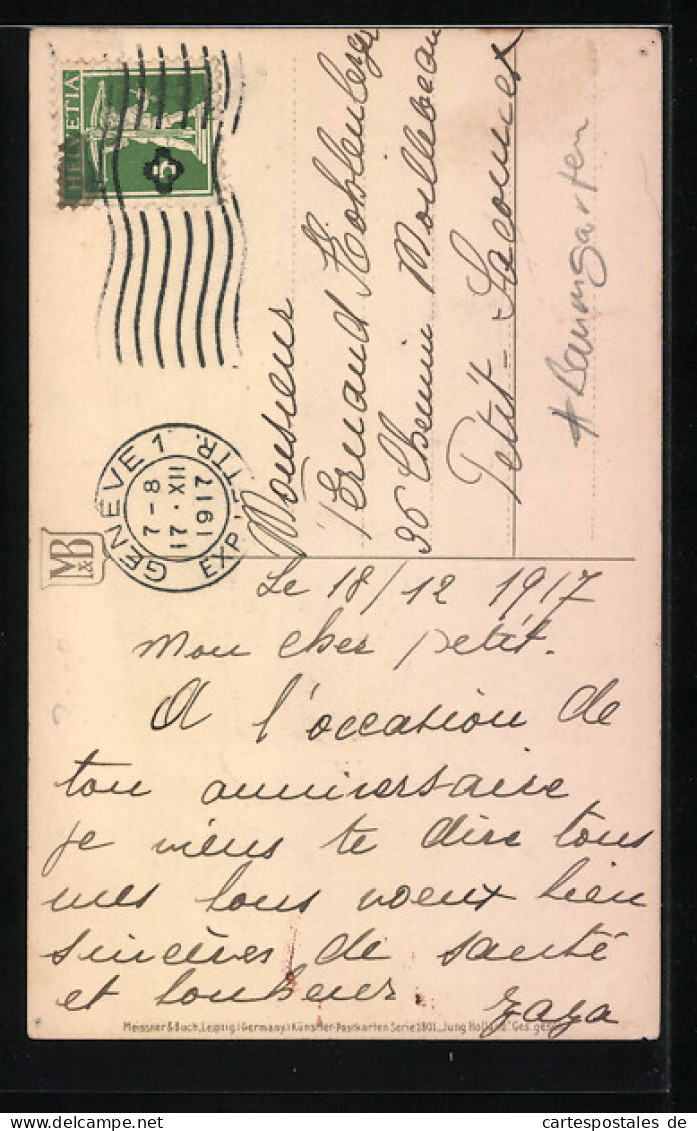 HELVETIA
5
GENÈVE 1
EXP. LETTR.
7-8
17·XII
1917
M&B
Monsieur
Fernand Kohlenberger
36 Chemin Moillebeau
Petit-Saconnex
# Baumgarten
Le 18/12 1917
Mon cher petit.
A l'occasion de
ton anniversaire
je viens te dire tous
mes bons voeux bien
sincères de santé
et bonheur.
Zaza
Meissner & Buch, Leipzig (Germany) Künstler-Postkarten Serie 1801 „Jung Holland“ Ges. gesch.
www.oldthing.de
cartespostales de